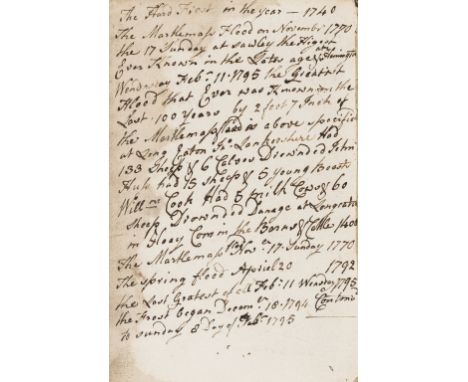 The Hard Frost in the year — 1740
The Martlemass Flood on Novembr 1770
the 17 Sunday at Sawley the Higest
Ever Known in the Later age & Hemington
Wendsday Febr. 11. 1795 the Greatest
Flood that Ever was Knowen in the
Last 100 years by 2 foot 7 Inch of
the Martlemass flood is above specified
at Long Eaton Jno Lankershere Had
133 Sheep & 6 Calves Drownded John
Huk had 15 Sheep & 5 young Beasts
Willm Cook Had 5 milk Cows & 60
Sheep Drownded Damage at Longeaton
in Hay Corn in the Barns & Cattle 1400
the Martlemass Nov. 17. Sunday 1770
The Spring flood Aprial 20 1792
the Last Gratest of all Febr. 11 Wensday 1795
the Frost began Decemr 18. 1794
to Sunday 8 Day of Febr. 1795